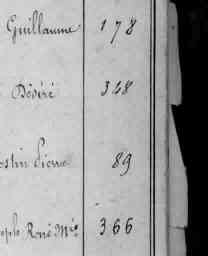 Guillaume 178
Désiré 328
ostin Pierre 89
oseph René Mie 366